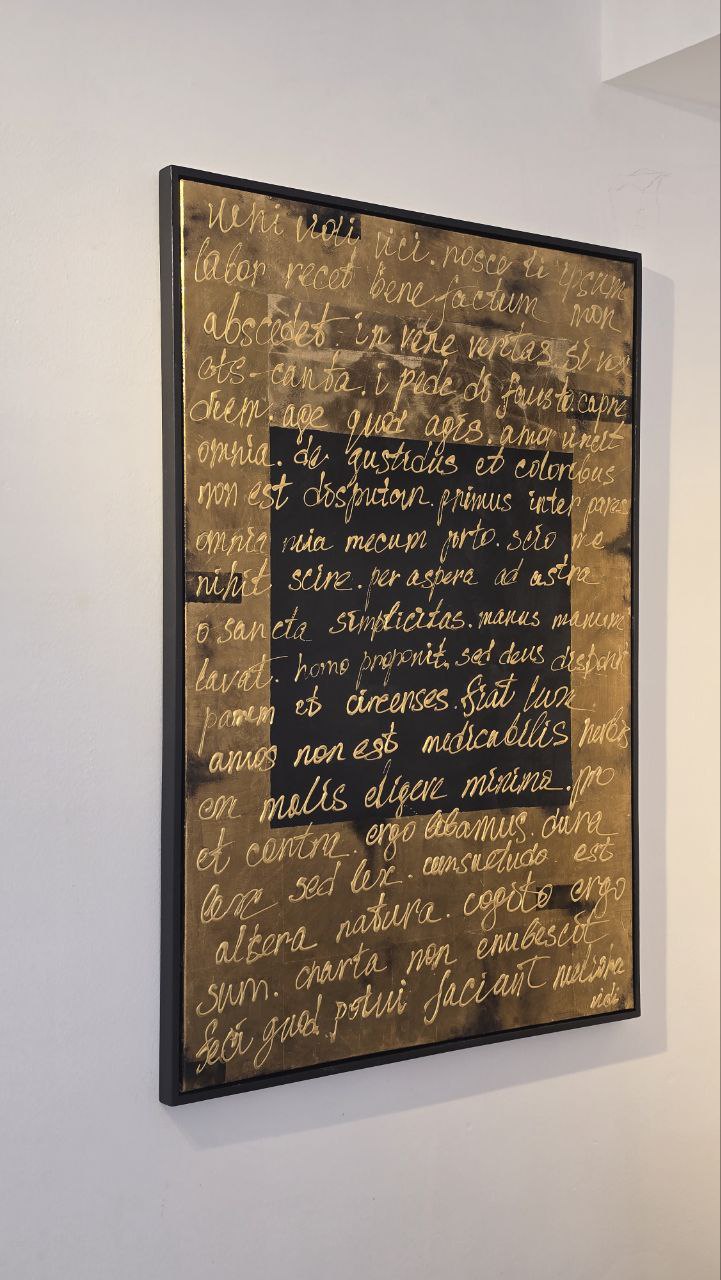 veni vidi vici. nosce ti ipsam
labor recet bene factum non
abscedet. in vene veritas si vox
ots-canta. i pede di fausto. capre
diem. age quod agis. amor vincit
omnia. de gustidus et coloribus
non est disputam. primus inter pares
omnia mia mecum porto. scio me
nihil scire. per aspera ad astra
o sancta simplicitas. manus manum
lavat. homo proponit, sed deus disponit
panem et circenses. fiat lux.
amos non est medicabilis herbis
en malis eligere minima. pro
et contra. ergo bibamus. dura
lex sed lex. consuetudo est
altera natura. cogito ergo
sum. charta non erubescit
feci quod potui faciant meliora